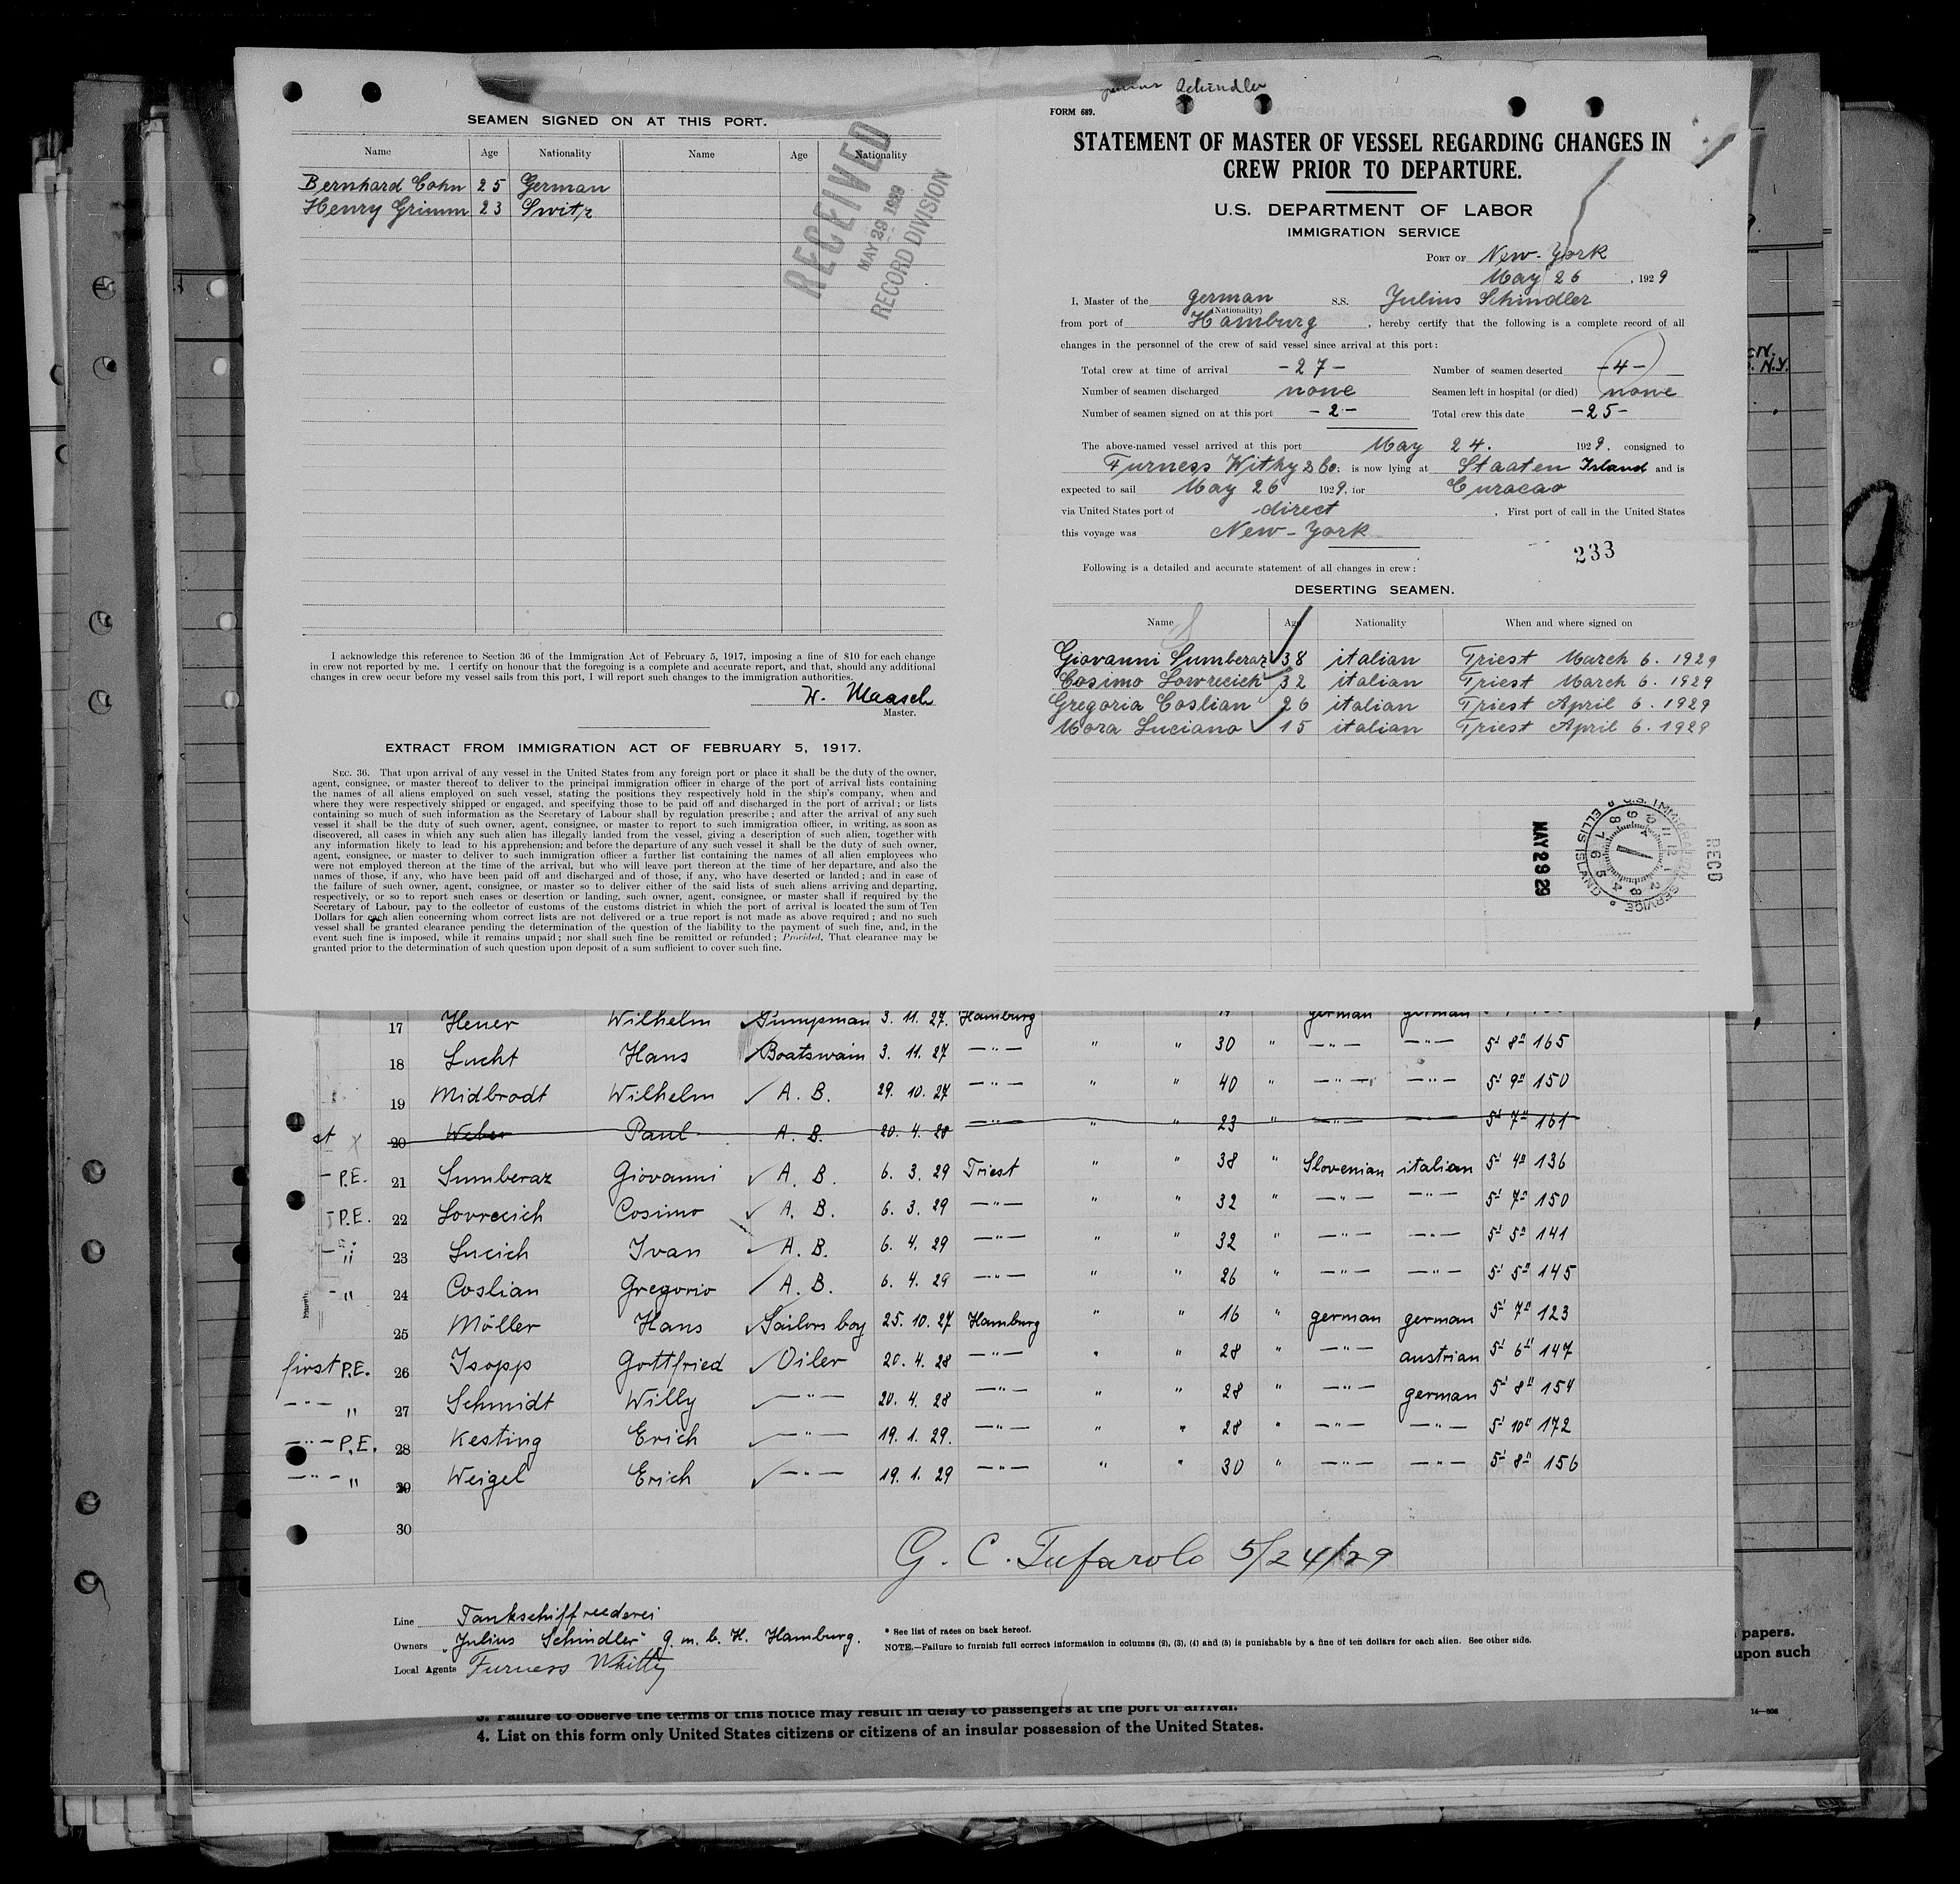 SEAMEN SIGNED ON AT THIS PORT.
Name Age Nationality Name Age Nationality
Bernhard Cohn 25 German
Henry Grimm 23 Switz
RECEIVED
MAY 29 1929
RECORD DIVISION
I acknowledge this reference to Section 36 of the Immigration Act of February 5, 1917, imposing a fine of $10 for each change
in crew not reported by me. I certify on honour that the foregoing is a complete and accurate report, and that, should any additional
changes in crew occur before my vessel sails from this port, I will report such changes to the immigration authorities.
H. Maasch
Master.
EXTRACT FROM IMMIGRATION ACT OF FEBRUARY 5, 1917.
SEC. 36. That upon arrival of any vessel in the United States from any foreign port or place it shall be the duty of the owner,
agent, consignee, or master thereof to deliver to the principal immigration officer in charge of the port of arrival lists containing
the names of all aliens employed on such vessel, stating the positions they respectively hold in the ship's company, when and
where they were respectively shipped or engaged, and specifying those to be paid off and discharged in the port of arrival; or lists
containing so much of such information as the Secretary of Labour shall by regulation prescribe; and after the arrival of any such
vessel it shall be the duty of such owner, agent, consignee, or master to report to such immigration officer, in writing, as soon as
discovered, all cases in which any such alien has illegally landed from the vessel, giving a description of such alien, together with
any information likely to lead to his apprehension; and before the departure of any such vessel it shall be the duty of such owner,
agent, consignee, or master to deliver to such immigration officer a further list containing the names of all alien employees who
were not employed thereon at the time of the arrival, but who will leave port thereon at the time of her departure, and also the
names of those, if any, who have been paid off and discharged and of those, if any, who have deserted or landed; and in case of
the failure of such owner, agent, consignee, or master so to deliver either of the said lists of such aliens arriving and departing,
respectively, or so to report such cases or desertion or landing, such owner, agent, consignee, or master shall if required by the
Secretary of Labour, pay to the collector of customs of the customs district in which the port of arrival is located the sum of Ten
Dollars for each alien concerning whom correct lists are not delivered or a true report is not made as above required; and no such
vessel shall be granted clearance pending the determination of the question of the liability to the payment of such fine, and, in the
event such fine is imposed, while it remains unpaid; nor shall such fine be remitted or refunded; Provided, That clearance may be
granted prior to the determination of such question upon deposit of a sum sufficient to cover such fine.
Schindler
FORM 689.
STATEMENT OF MASTER OF VESSEL REGARDING CHANGES IN
CREW PRIOR TO DEPARTURE.
U.S. DEPARTMENT OF LABOR
IMMIGRATION SERVICE
PORT OF New-York
May 26, 1929
I, Master of the german S.S. Julius Schindler
(Nationality)
from port of Hamburg, hereby certify that the following is a complete record of all
changes in the personnel of the crew of said vessel since arrival at this port:
Total crew at time of arrival -27- Number of seamen deserted -4-
Number of seamen discharged none Seamen left in hospital (or died) none
Number of seamen signed on at this port -2- Total crew this date -25-
The above-named vessel arrived at this port May 24. 1929. consigned to
Furness Withy & Co; is now lying at Staaten Island and is
expected to sail May 26 1929, for Curacao
via United States port of direct. First port of call in the United States
this voyage was New-York
233
Following is a detailed and accurate statement of all changes in crew:
DESERTING SEAMEN.
Name Age Nationality When and where signed on
Giovanni Sumberaz 38 italian Triest March 6. 1929
Cosimo Lovrecich 32 italian Triest March 6. 1929
Gregoria Coslian 26 italian Triest April 6. 1929
Mora Luciano 15 italian Triest April 6. 1929
MAY 29 29
U.S. IMMIGRATION SERVICE ELLIS ISLAND
REC'D
N.Y.
9
17 Heuer Wilhelm Pumpman 3. 11. 27. Hamburg german german
18 Lucht Hans Boatswain 3. 11. 27 —"— " " 30 " —"— —"— 5' 8" 165
19 Midbrodt Wilhelm A. B. 29. 10. 27 —"— " " 40 " —"— —"— 5' 9" 150
st x 20 Weber Paul A. B. 20. 4. 28 —"— " " 23 " —"— —"— 5' 7" 161
- P.E. 21 Sumberaz Giovanni A. B. 6. 3. 29 Triest " " 38 " Slovenian italian 5' 4" 136
- P.E. 22 Lovrecich Cosimo A. B. 6. 3. 29 —"— " " 32 " —"— —"— 5' 7" 150
- " 23 Lucich Ivan A. B. 6. 4. 29 —"— " " 32 " —"— —"— 5' 5" 141
- " 24 Coslian Gregorio A. B. 6. 4. 29 —"— " " 26 " —"— —"— 5' 5" 145
25 Möller Hans Sailors boy 25. 10. 27 Hamburg " " 16 " german german 5' 7" 123
first P.E. 26 Isopp Gottfried Oiler 20. 4. 28 —"— " " 28 " —"— austrian 5' 6" 147
—"— " 27 Schmidt Willy —"— 20. 4. 28 —"— " " 28 " —"— german 5' 8" 154
—"— P.E. 28 Kesting Erich —"— 19. 1. 29. —"— " " 28 " —"— —"— 5' 10" 172
—"— " 29 Weigel Erich —"— 19. 1. 29 —"— " " 30 " —"— —"— 5' 8" 156
30
G. C. Tufarolo 5/24/29
Line Tankschiffreederei
Owners "Julius Schindler" G.m.b.H. Hamburg.
Local Agents Furness Whitty
* See list of races on back hereof.
NOTE.—Failure to furnish full correct information in columns (2), (3), (4) and (5) is punishable by a fine of ten dollars for each alien. See other side.
papers.
upon such
3. Failure to observe the terms of this notice may result in delay to passengers at the port of arrival.
4. List on this form only United States citizens or citizens of an insular possession of the United States.